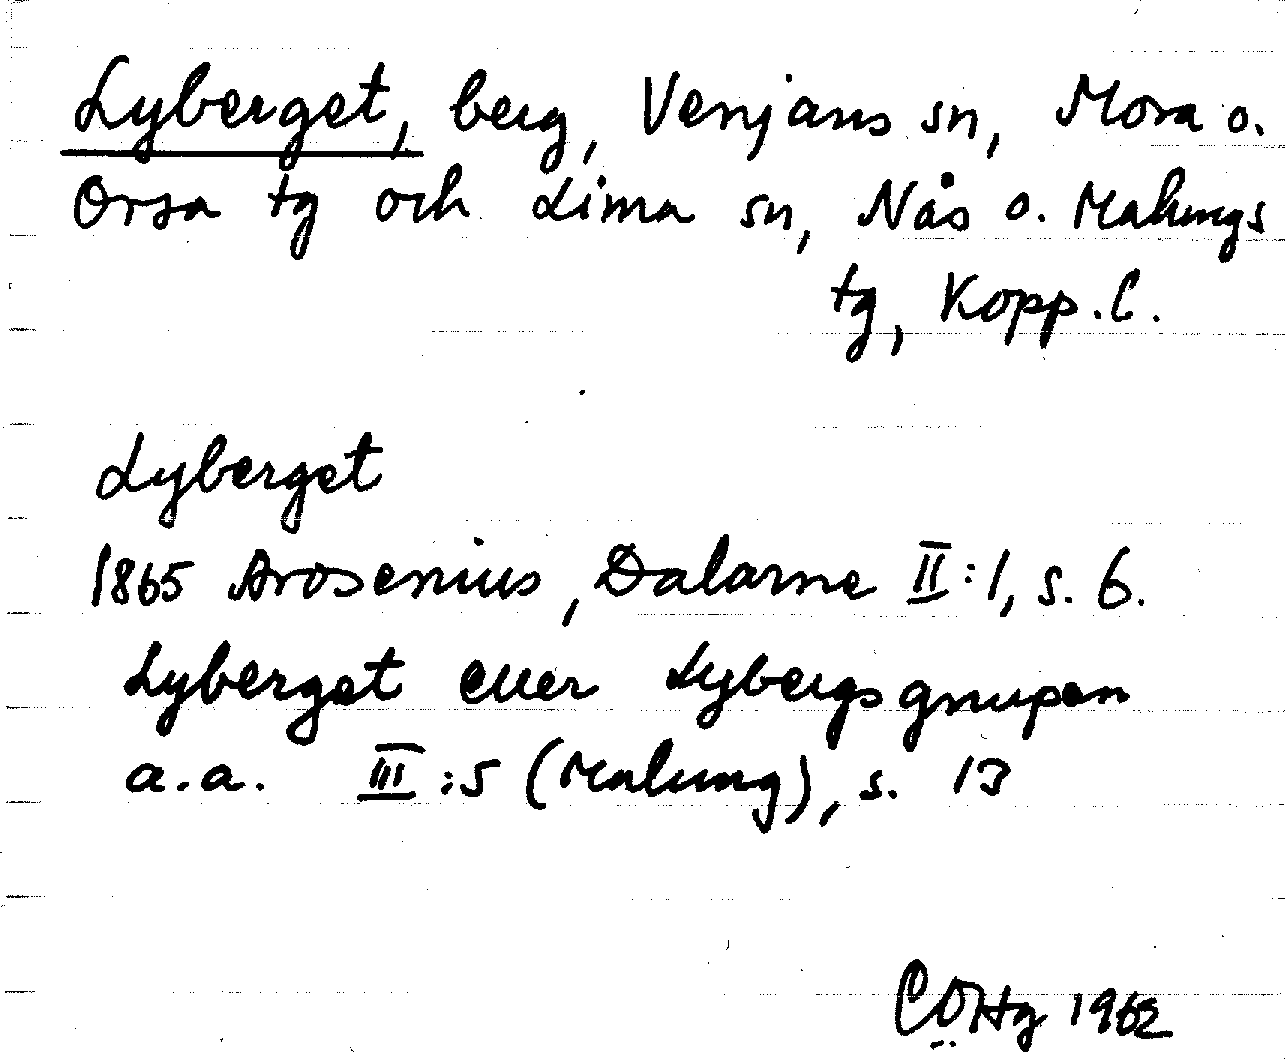 Lyberget, berg, Venjans sn, Mora o.
Orsa tg och Lima sn, Nås o. Malungs
tg, Kopp. l.
Lyberget
1865 Arosenius, Dalarne II:1, s. 6.
Lyberget eller Lybergsgnupen
a.a. III:5 (Malung), s. 13
1962